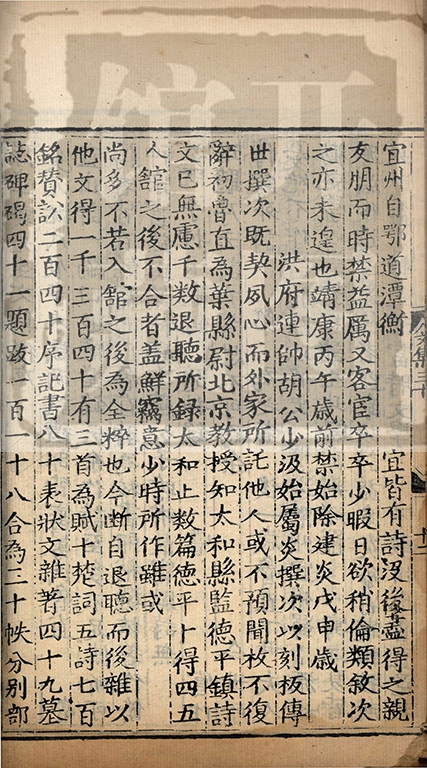 宜州自鄂道潭衡　　宜皆有詩沒後盡得之親
友朋而時禁益厲又客宦卒卒少暇日欲稍倫類敘次
之亦未遑也靖康丙午歲前禁始除建炎戊申歲
洪府連帥胡公少汲始屬炎撰次以刻板傳
世撰次既契夙心而外家所託他人或不預聞枚不復
辭初魯直為葉縣尉北京教授知太和縣監德平鎮詩
文已無慮千數退聽所録太和止數篇德平卜得四五
入舘之後不合者盖鮮竊意少時所作雖或
尚多不若入舘之後為全粹也今斷自退聽而後雜以
他文得一千三百四十有三首為賦十楚詞五詩七百
銘賛訟二百四十序記書八十表狀文雜著四十九墓
誌碑碣四十一題跋一百一十八合為三十帙分別部